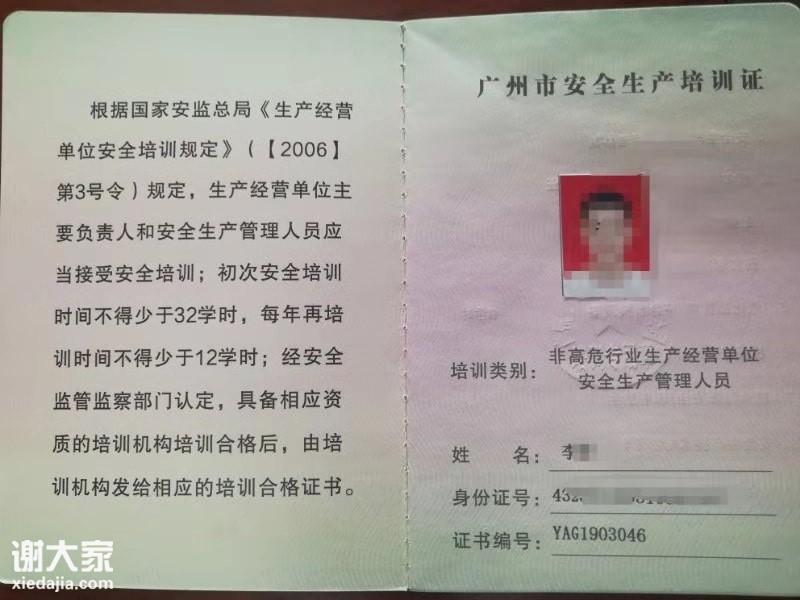 根据国家安监总局《生产经营
单位安全培训规定》(【2006】
第3号令)规定，生产经营单位主
要负责人和安全生产管理人员应
当接受安全培训；初次安全培训
时间不得少于32学时，每年再培
训时间不得少于12学时；经安全
监管监察部门认定，具备相应资
质的培训机构培训合格后，由培
训机构发给相应的培训合格证书。
广州市安全生产培训证
培训类别：非高危行业生产经营单位
安全生产管理人员
姓 名：李
身份证号：432
证书编号：YAG1903046
谢大家
xiedajia.com